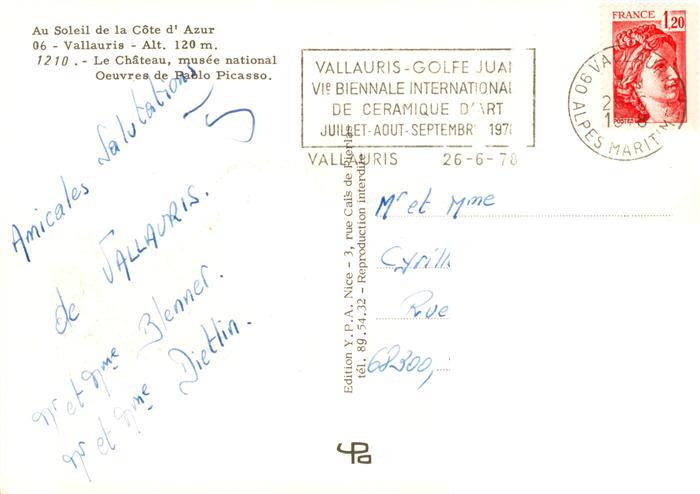 Au Soleil de la Côte d'Azur
06 - Vallauris - Alt. 120 m.
1210. - Le Château, musée national
Oeuvres de Pablo Picasso.
Amicales Salutations
de VALLAURIS.
Mr et Mme Blenner.
Mr et Mme Dietlin.
VALLAURIS-GOLFE JUAN
VIe BIENNALE INTERNATIONAL
DE CERAMIQUE D'ART
JUILLET-AOUT-SEPTEMBR 1978
VALLAURIS 26-6-78
FRANCE
1,20
POSTES
06 VALLAURIS
ALPES MARITIM
Edition Y.P.A. Nice - 3, rue Cais de Pierlas
tél. 89.54.32 - Reproduction interdite
Mr et Mme
Cyrill
Rue
68300,